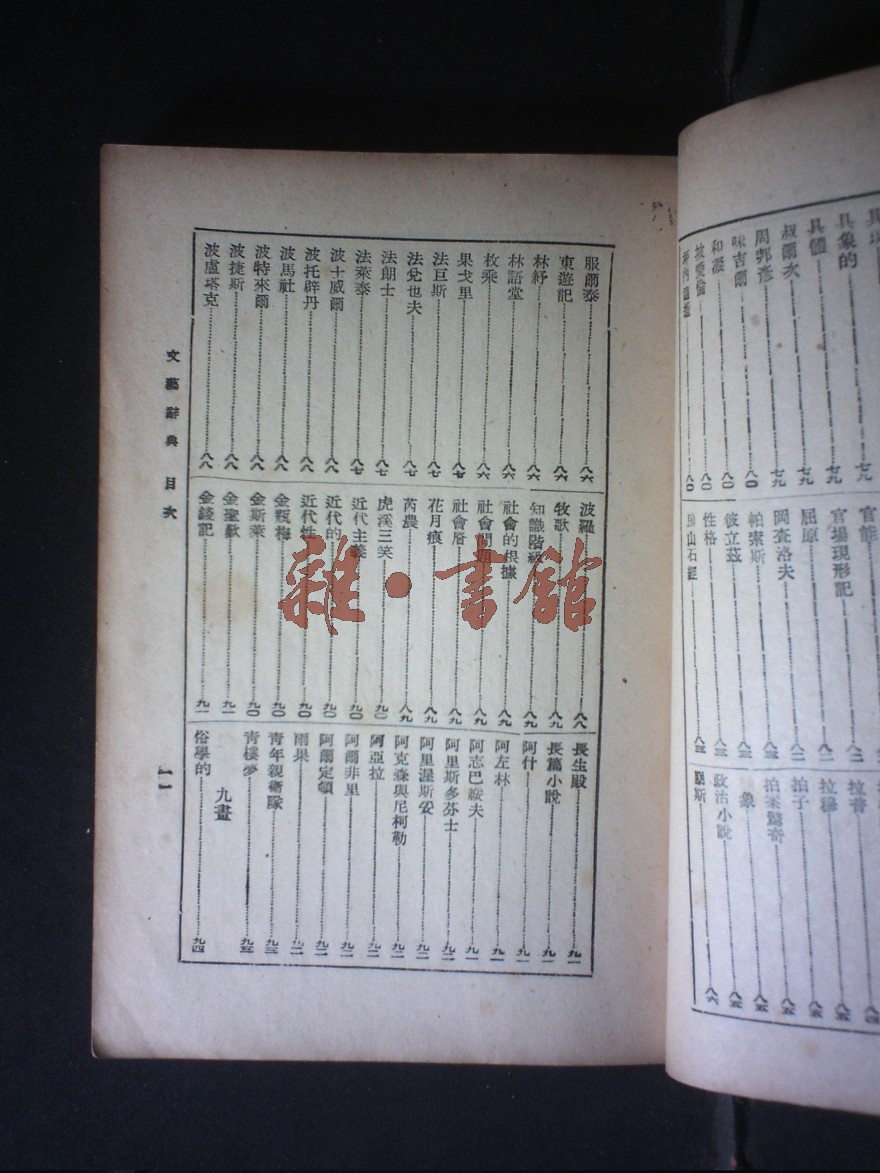 具體的
具體
叔爾次
周邦彥
味吉爾
和凝
坡愛倫
七九
七九
七九
八〇
八〇
八〇
八〇
官能
官場現形記
屈原
岡查洛夫
帕索斯
彼立茲
性格
房山石經
拉普
拉穆
拍子
拍案驚奇
政治小說
八六
服爾泰 八六
東遊記 八六
林紓 八六
林語堂 八六
枚乘 八六
果戈里 八七
法巨斯 八七
法兌也夫 八七
法朗士 八七
法萊泰 八七
波十威爾 八八
波托辟丹 八八
波馬社 八八
波特來爾 八八
波捷斯 八八
波盧塔克 八八
波羅 八八
牧歌 八九
知識階級 八九
社會的根據 八九
社會問題 八九
社會層 八九
花月痕 八九
芮農 八九
虎溪三笑 九〇
近代主義 九〇
近代的 九〇
近代性 九〇
金瓶梅 九〇
金斯萊 九〇
金聖歎 九一
金錢記 九一
長生殿 九一
長篇小說 九一
阿什 九一
阿左林 九一
阿志巴綏夫 九一
阿里斯多芬士 九二
阿里渥斯妥 九二
阿克森與尼柯勒 九二
阿亞拉 九二
阿爾非里 九二
阿爾定頓 九二
雨果 九二
青年親衛隊 九三
青樓夢 九三
九畫
俗學的 九四
文藝辭典 目次
一一
雜·書館